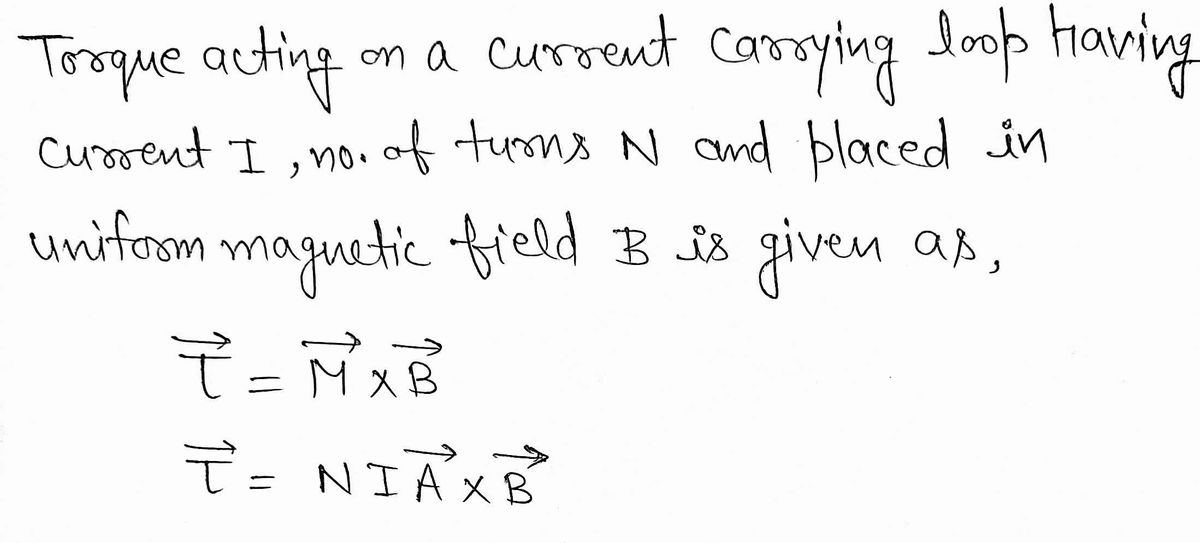 Torque acting on a current carrying loop Having
current I, no. of turns N and placed in
uniform magnetic field B is given as,
$\vec{\tau} = \vec{M} \times \vec{B}$
$\vec{\tau} = NI\vec{A} \times \vec{B}$